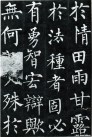 於情田雨甘露
於法種者固必
有勇智宏辯歟
無何議人殊於